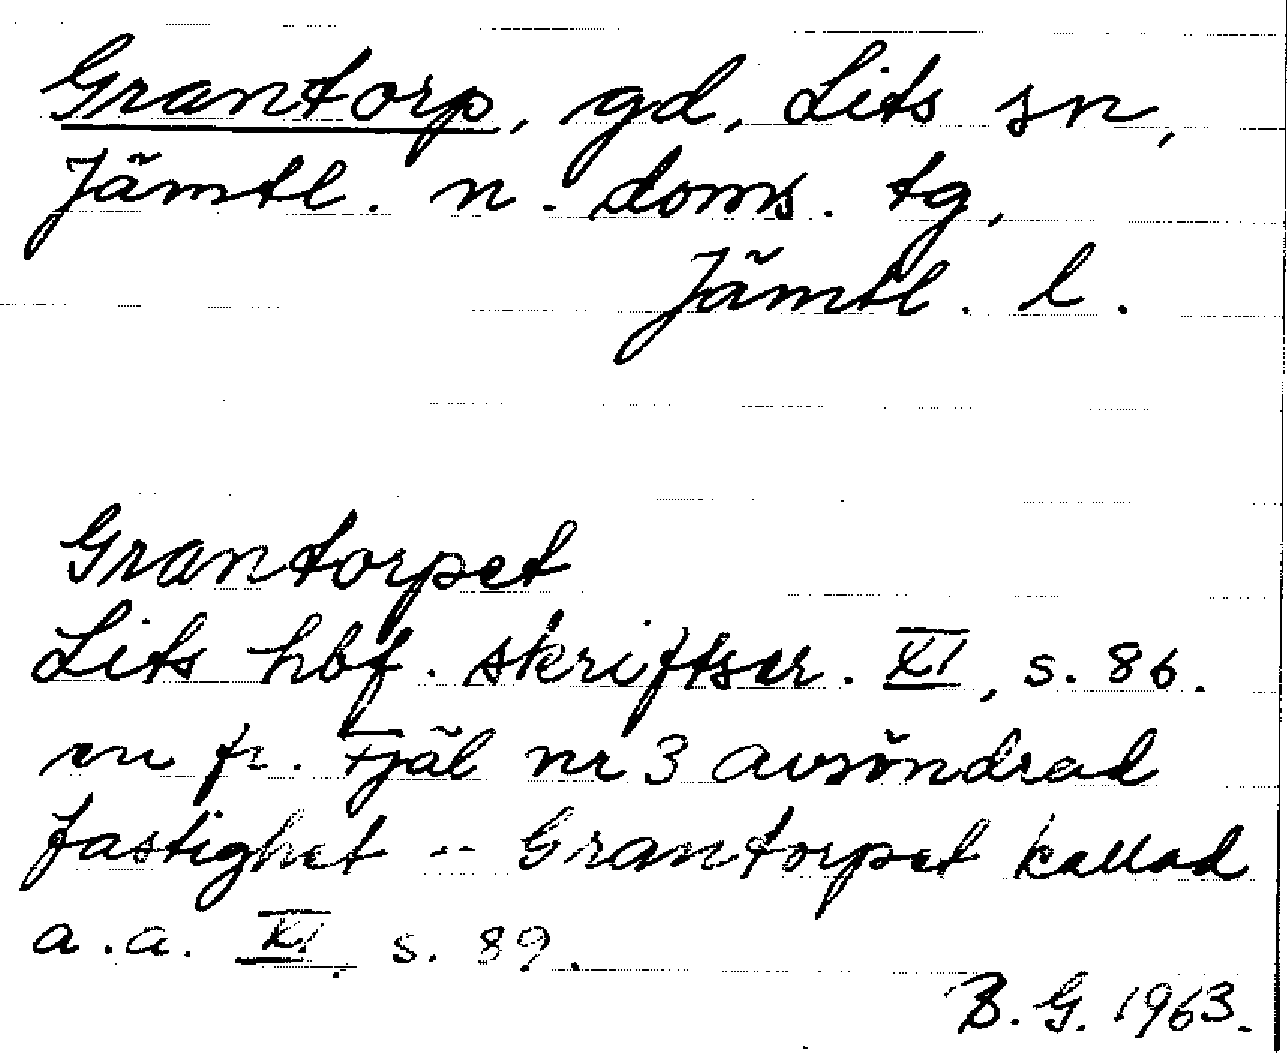 Grantorp, gd, Lits sn,
Jämtl. n. doms. tg,
Jämtl. l.
Grantorpet
Lits hbf. skriftser. XI, s. 86.
en fr. Fjäl nr 3 avsöndrad
fastighet -- Grantorpet kallad
a.a. XI, s. 89.
B. G. 1963.